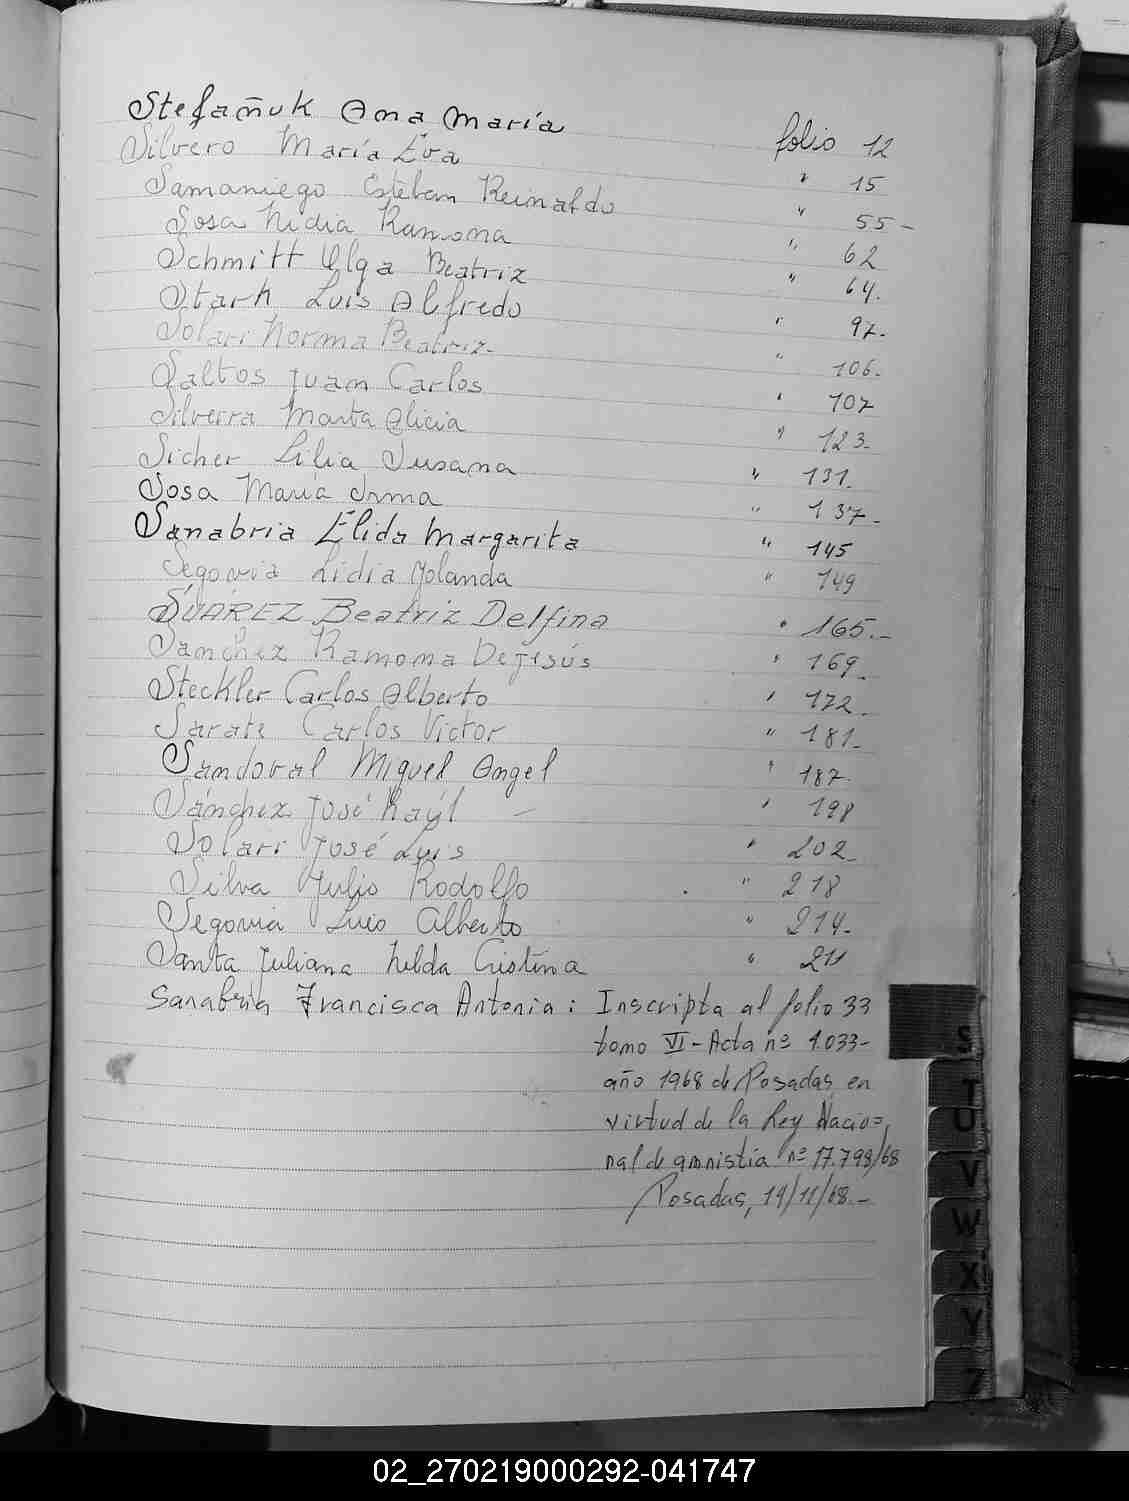 Stefañuk Ana María folio 12
Silvero María Eva " 15
Samaniego Esteban Reinaldo " 55-
Sosa Nidia Ramona " 62
Schmitt Olga Beatriz " 64.
Stark Luis Alfredo " 97.
Solari Norma Beatriz- " 106.
Saltos Juan Carlos " 107
Silverra Marta Alicia " 123-
Sicher Lilia Susana " 131.
Sosa María Irma " 137-
Sanabria Elida Margarita " 145
Segovia Lidia Yolanda " 149
SUÁREZ Beatriz Delfina " 165.-
Sanchez Ramona De Jesús " 169.
Steckler Carlos Alberto " 172.
Sarate Carlos Victor " 181-
Sandoval Miguel Angel " 187.
Sánchez José Raúl - " 198
Solari José Luis " 202-
Silva Julio Rodolfo " 218
Segovia Luis Alberto " 214-
Santa Juliana Nelda Cristina " 211
Sanabria Francisca Antonia: Inscripta al folio 33
tomo VI-Acta nº 1.033-
año 1968 de Posadas en
virtud de la Ley Nacio=
nal de amnistía nº 17.798/68
Posadas, 19/11/68.-
S
T
U
V
W
X
Y
Z
02_270219000292-041747